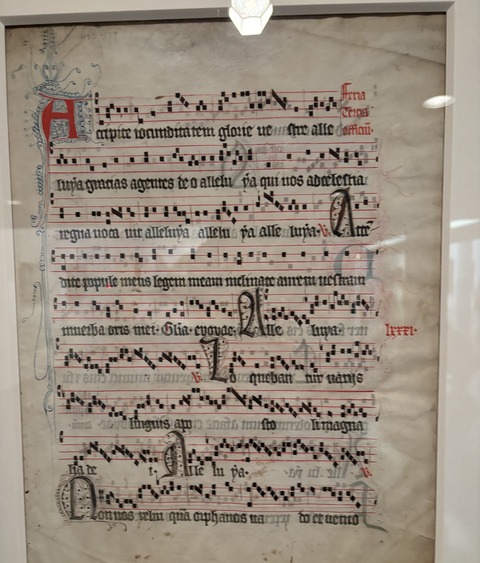 Feria
Tercia
officiū.
Accipite iocunditatem glorie ve stre alle
luya gracias agentes deo allelu ya qui nos ad celestia
regna voca uit alleluya allelu ya alle luya. V. Atte
dite popule meus legem meam inclinate aurem vestram
in verba oris mei. Gl̄ia. evovae. Alle luya. lxxxi.
V. Lo queban tur varijs
linguis apo sto li magna
lia de i. Alle lu ya. V.
Non vos relin quā orphanos va do et venio